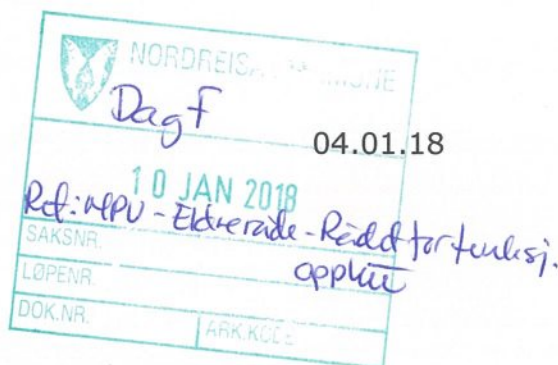 NORDREISA KOMMUNE
Dag F
04.01.18
10 JAN 2018
Ref: MPU - Eldreråde - Rådet for funksj.
SAKSNR.
LØPENR.
DOK.NR.
ARK.KODE